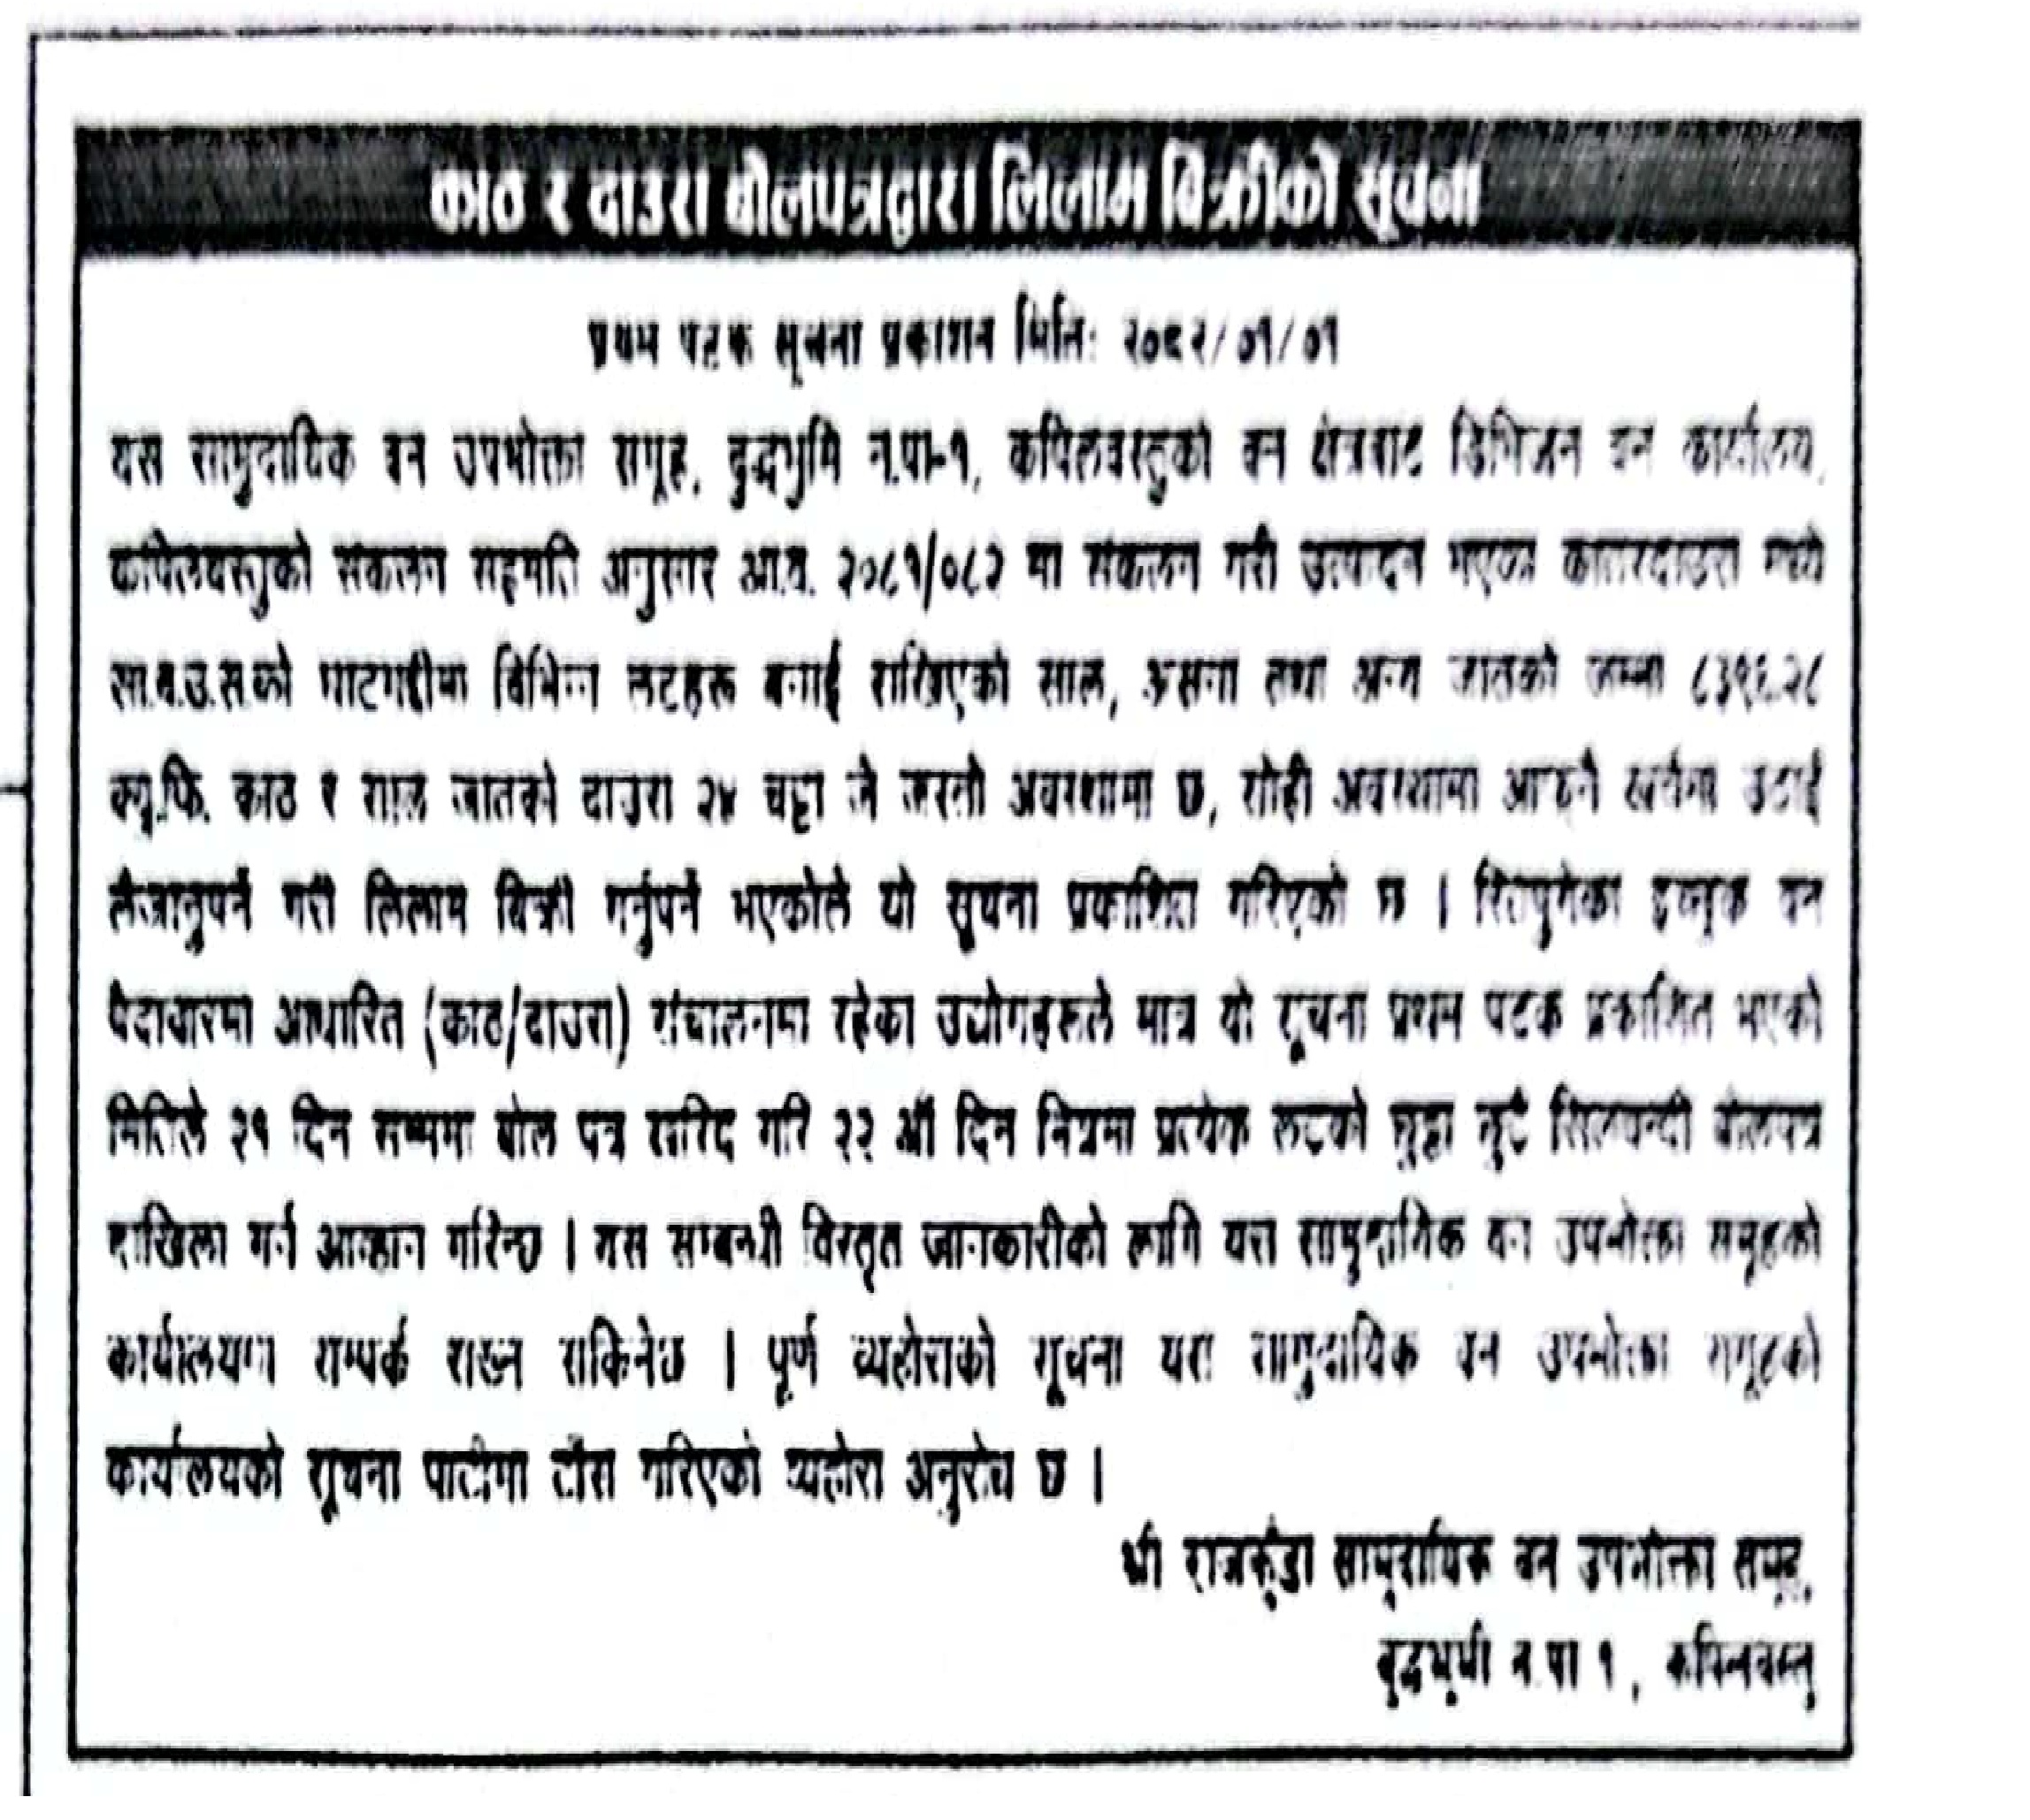 काठ र दाउरा बोलपत्रद्वारा लिलाम बिक्रीको सूचना
प्रथम पटक सूचना प्रकाशन मितिः २०८२/०१/०१
यस सामुदायिक वन उपभोक्ता समूह, बुद्धभुमि न.पा-१, कपिलवस्तुको वन क्षेत्रबाट डिभिजन वन कार्यालय,
कपिलवस्तुको संकलन सहमति अनुसार आ.व. २०८१/०८२ मा संकलन गरी उत्पादन भएका काठदाउरा मध्ये
सा.व.उ.स.को घाटगद्दीमा विभिन्न लटहरू बनाई राखिएको साल, असना तथा अन्य जातको जम्मा
क्यू.फि. काठ र साल जातको दाउरा २४ चट्टा जे जस्तो अवस्थामा छ, सोही अवस्थामा आफ्नै खर्चमा उठाई
लैजानुपर्ने गरी लिलाम बिक्री गर्नुपर्ने भएकोले यो सूचना प्रकाशित गरिएको छ । रितपुगेका इच्छुक वन
पैदावारमा आधारित (काठ/दाउरा) संचालनमा रहेका उद्योगहरूले मात्र यो सूचना प्रथम पटक प्रकाशित भएको
मितिले दिन सम्ममा बोल पत्र खरिद गरि औं दिन भित्रमा प्रत्येक लटको छुट्टा छुट्टै सिलबन्दी बोलपत्र
दाखिला गर्न आव्हान गरिन्छ । यस सम्बन्धी विस्तृत जानकारीको लागि यस सामुदायिक वन उपभोक्ता समूहको
कार्यालयमा सम्पर्क राख्न सकिनेछ । पूर्ण व्यहोराको सूचना यस सामुदायिक वन उपभोक्ता समूहको
कार्यालयको सूचना पाटीमा टाँस गरिएको व्यहोरा अनुरोध छ ।
श्री राजकुँडा सामुदायिक वन उपभोक्ता समूह,
बुद्धभुमी न.पा १, कपिलवस्तु